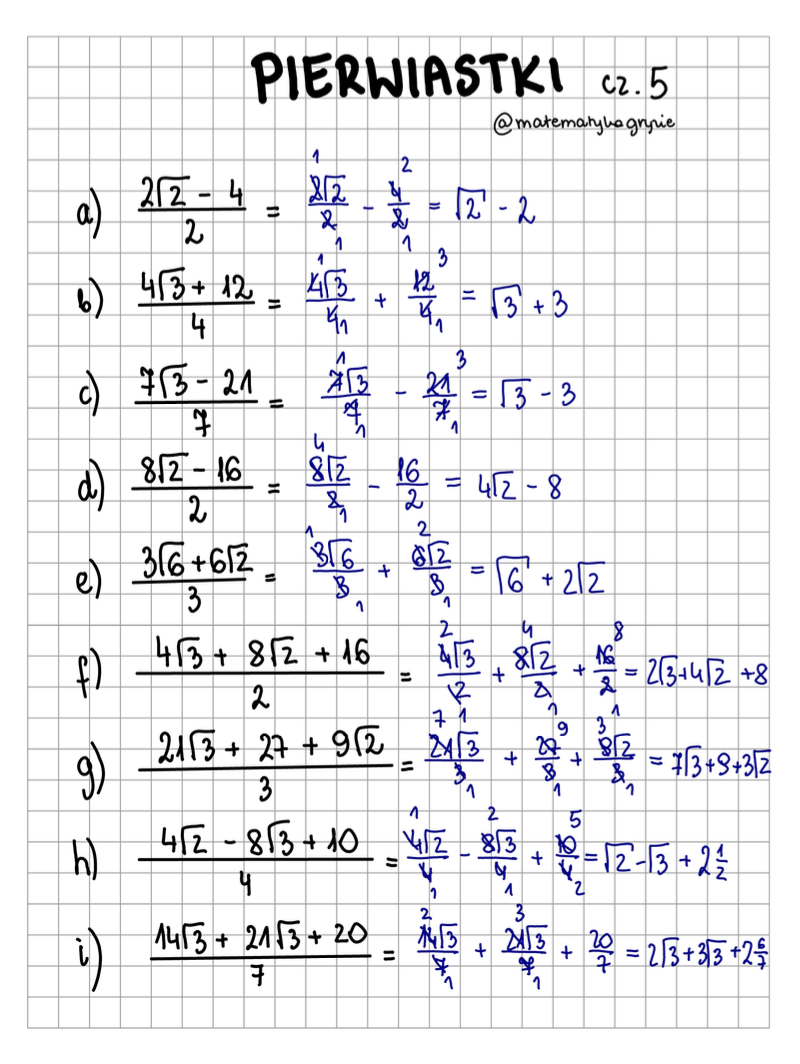 PIERWIASTKI cz.5
@matematykagryzie
a) (2√2 - 4)/2 = 2√2/2 - 4/2 = √2 - 2
b) (4√3 + 12)/4 = 4√3/4 + 12/4 = √3 + 3
c) (7√3 - 21)/7 = 7√3/7 - 21/7 = √3 - 3
d) (8√2 - 16)/2 = 8√2/2 - 16/2 = 4√2 - 8
e) (3√6 + 6√2)/3 = 3√6/3 + 6√2/3 = √6 + 2√2
f) (4√3 + 8√2 + 16)/2 = 4√3/2 + 8√2/2 + 16/2 = 2√3 + 4√2 + 8
g) (21√3 + 27 + 9√2)/3 = 21√3/3 + 27/3 + 9√2/3 = 7√3 + 9 + 3√2
h) (4√2 - 8√3 + 10)/4 = 4√2/4 - 8√3/4 + 10/4 = √2 - √3 + 2 1/2
i) (14√3 + 21√3 + 20)/7 = 14√3/7 + 21√3/7 + 20/7 = 2√3 + 3√3 + 2 6/7